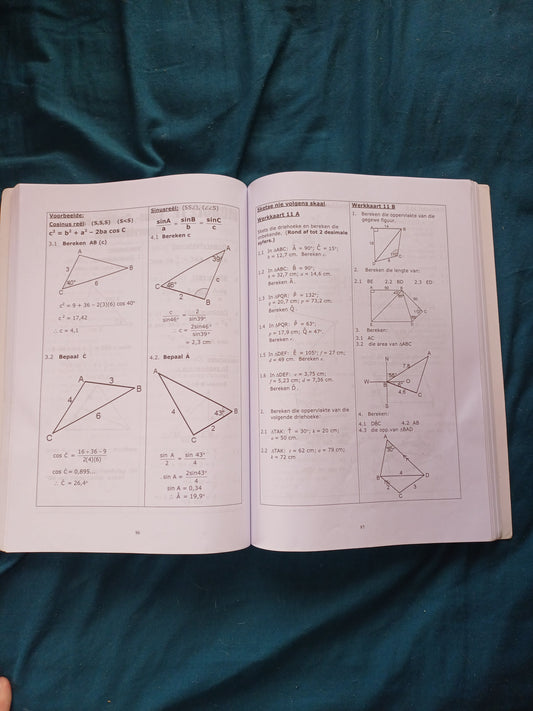 Voorbeelde:
Cosinus reël: (S,S,S) (S∢S)
c² = b² + a² − 2ba cos C
3.1 Bereken AB (c)
A
3
B
40°
6
C
c² = 9 + 36 − 2(3)(6) cos 40°
c² = 17,42
∴ c = 4,1
3.2 Bepaal Ĉ
A
3
B
4
6
C
cos Ĉ = 16 + 36 − 9 / 2(4)(6)
cos Ĉ = 0,895...
∴ Ĉ = 26,4°
Sinusreël: (SS∠), (∠∠S)
sinA/a = sinB/b = sinC/c
4.1 Bereken c
A
39°
c
46°
C
2
B
c/sin46° = 2/sin39°
∴ c = 2sin46°/sin39°
= 2,3 cm
4.2. Bepaal Â
A
4
43°
B
2
C
sin A/2 = sin 43°/4
∴ sin A = 2sin43°/4
sin A = 0,34
∴ Â = 19,9°
96
Sketse nie volgens skaal
Werkkaart 11 A
Skets die driehoeke en bereken die
onbekende. (Rond af tot 2 desimale
syfers.)
1.1 In ΔABC: Â = 90°; Ĉ = 15°;
= 12,7 cm. Bereken
1.2 In ΔABC: B̂ = 90°;
= 32,7 cm; = 14,6 cm.
Bereken Â.
1.3 In ΔPQR: P̂ = 132°;
= 20,7 cm; p = 73,2 cm.
Bereken Q̂.
1.4 In ΔPQR: P̂ = 63°;
p = 17,9 cm; Q̂ = 47°.
Bereken
1.5 In ΔDEF: Ê = 105°; f = 27 cm;
d = 49 cm. Bereken
1.6 In ΔDEF: e = 3,75 cm;
f = 5,23 cm; d = 7,36 cm.
Bereken D̂.
2. Bereken die oppervlakte van die
volgende driehoeke:
2.1 ΔTAK: T̂ = 30°; k = 20 cm;
= 50 cm.
2.2 ΔTAK: t = 62 cm; a = 79 cm;
k = 72 cm
Werkkaart 11 B
1. Bereken die oppervlakte van die
gegewe figuur.
14
18
2. Bereken die lengte van:
2.1 BE 2.2 BD 2.3 ED
A
B
E
D
C
3. Bereken:
3.1 AC
3.2 die area van ΔABC
N
A
7,8
W
O
4,6
S
C
4. Bereken:
4.1 DB̂C 4.2 AB
4.3 die opp.van ΔBAD
A
30°
B
4
D
2
3
C
97